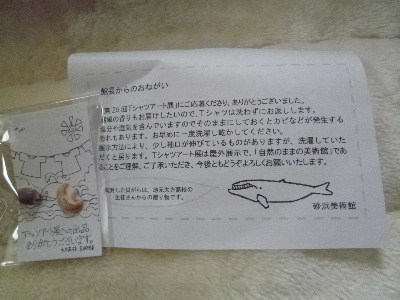 館長からのおねがい
第26回「Tシャツアート展」にご応募くださり、ありがとうございました。
潮風の香りもお届けしたいので、Tシャツは洗わずにお返しします。
塩分や湿気を含んでいますのでそのままにしておくとカビなどが発生する
恐れもあります。お早めに一度洗濯し乾かしてください。
展示方法により、少し袖口が伸びているものがありますが、洗濯していた
だくと戻ります。Tシャツアート展は屋外展示で、「自然のままの美術館」であ
ることをご理解、ご了承いただき、今後ともどうぞよろしくお願いいたします。
同封した貝がらは、地元大方高校の
生徒さんからの贈り物です。
砂浜美術館
Tシャツアート展への出品
ありがとうございます。